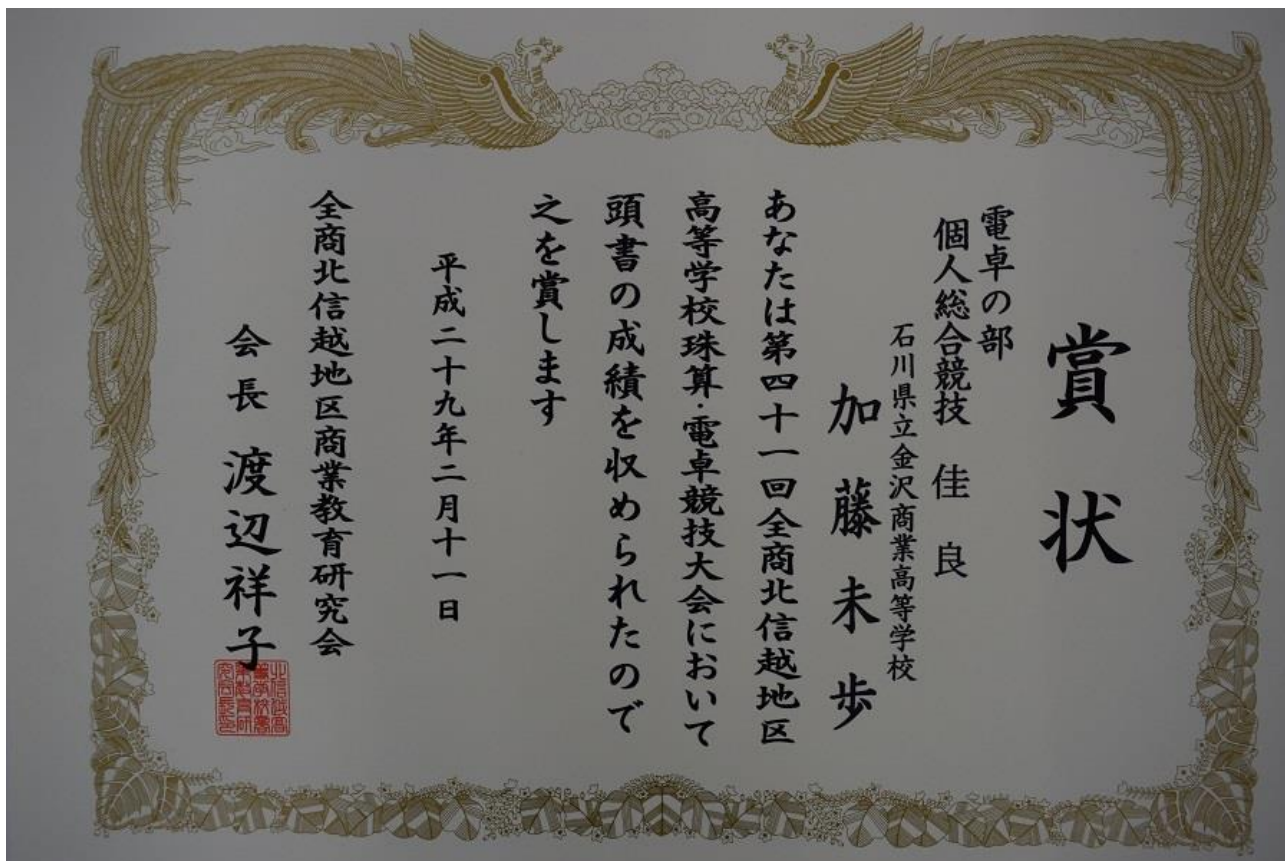 賞状
電卓の部
個人総合競技 佳良
石川県立金沢商業高等学校
加藤未歩
あなたは第四十一回全商北信越地区
高等学校珠算・電卓競技大会において
頭書の成績を収められたので
之を賞します
平成二十九年二月十一日
全商北信越地区商業教育研究会
会長 渡辺祥子